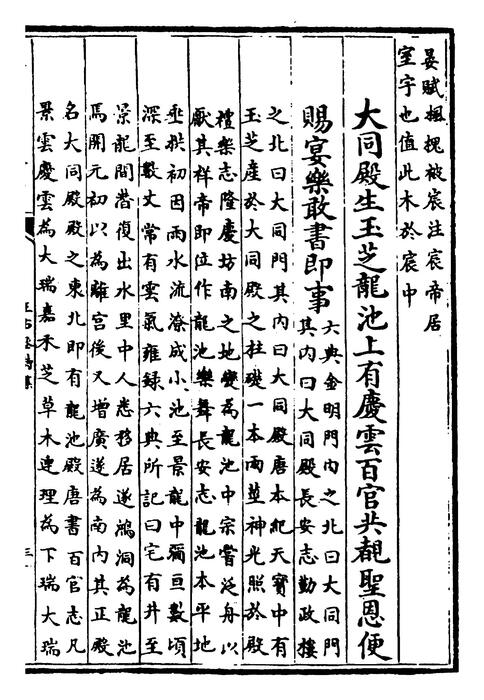 晏賦楓槐被宸注宸帝居
室宇也值此木於宸中
大同殿生玉芝龍池上有慶雲百官共覩聖恩便
賜宴樂敢書即事
六典金明門内之北曰大同門
其内曰大同殿長安志勤政樓
之北曰大同門其内曰大同殿唐本紀天寳中有
玉芝産於大同殿之柱礎一本兩莖神光照於殿
禮樂志隆慶坊南之地變為龍池中宗嘗泛舟以
厭其祥帝即位作龍池樂舞長安志龍池本平地
垂拱初因雨水流潦成小池至景龍中彌亘數頃
深至數丈常有雲氣雍録六典所記曰宅有井至
景龍間復出水里中人悉移居遂鴻洞為龍池
焉開元初以為離宮後又增廣遂為南内其正殿
名大同殿殿之東北即有龍池殿唐書百官志凡
景雲慶雲為大瑞嘉禾芝草木連理為下瑞大瑞
三